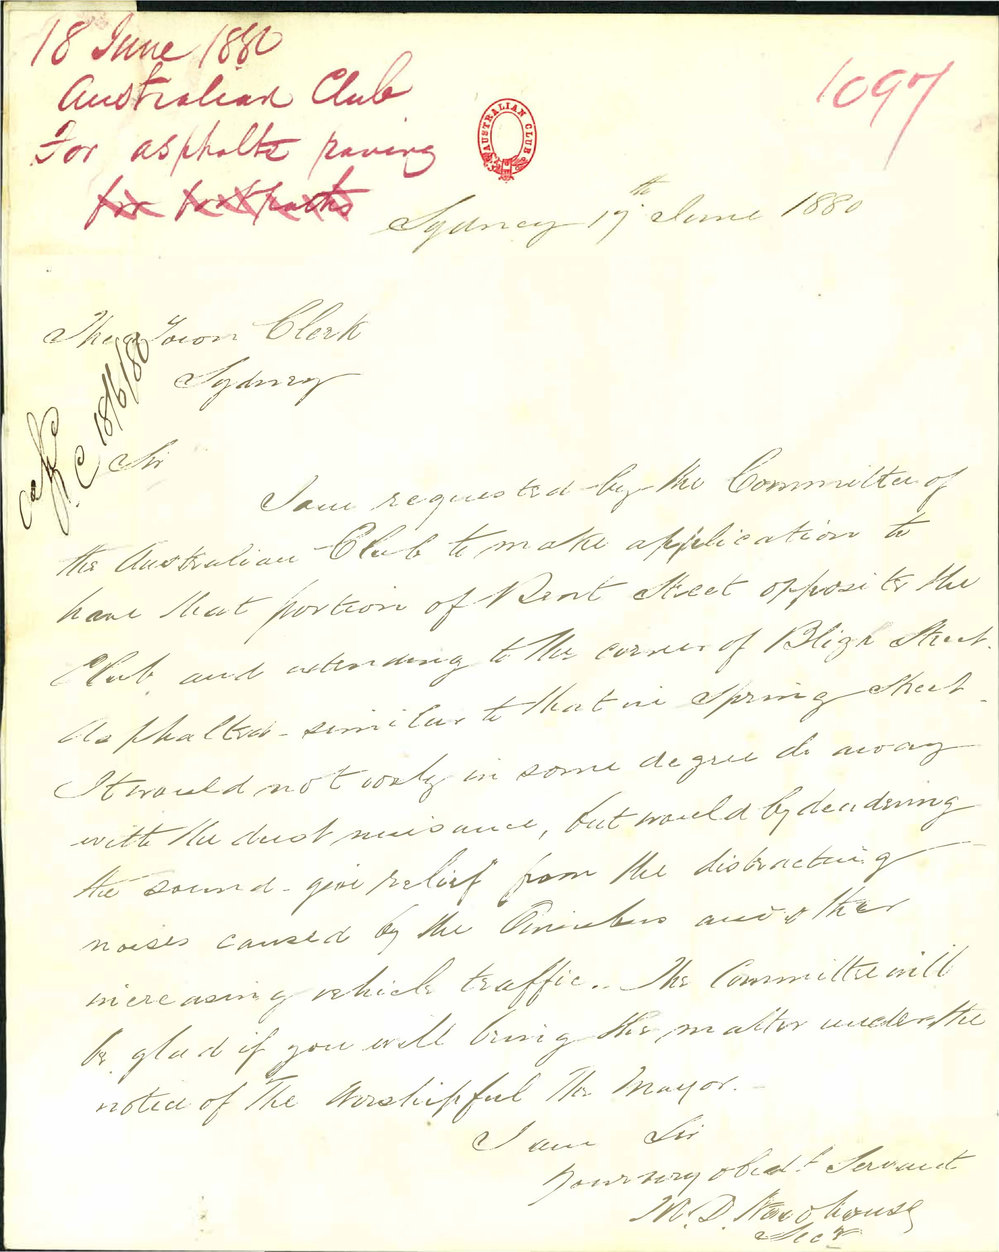 18 June 1880
Australian Club
For asphalte paving
for footpaths
1097
AUSTRALIAN CLUB
Sydney 17th June 1880
The Town Clerk
Sydney
18/6/80
Sir
I am requested by the Committee of
the Australian Club to make application to
have that portion of Bent Street opposite the
Club and extending to the corner of Bligh Street.
Asphalted - similar to that in Spring Street -
It would not only in some degree do away
with the dust nuisance, but would by deadening
the sound - give relief from the distracting
noises caused by the Omnibus and other
increasing vehicle traffic.. The Committee will
be glad if you will bring the matter under the
notice of The Worshipful The Mayor. -
I am Sir
Your very obedt Servant
Secy